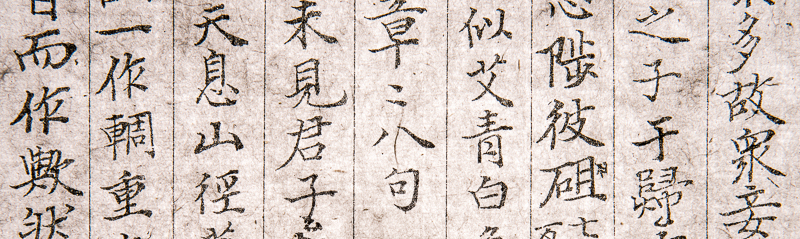 多故衆妾
之子于歸
陟彼砠
似艾青白
章〻八句
未見君子
天息山徑
一作輖重
而作